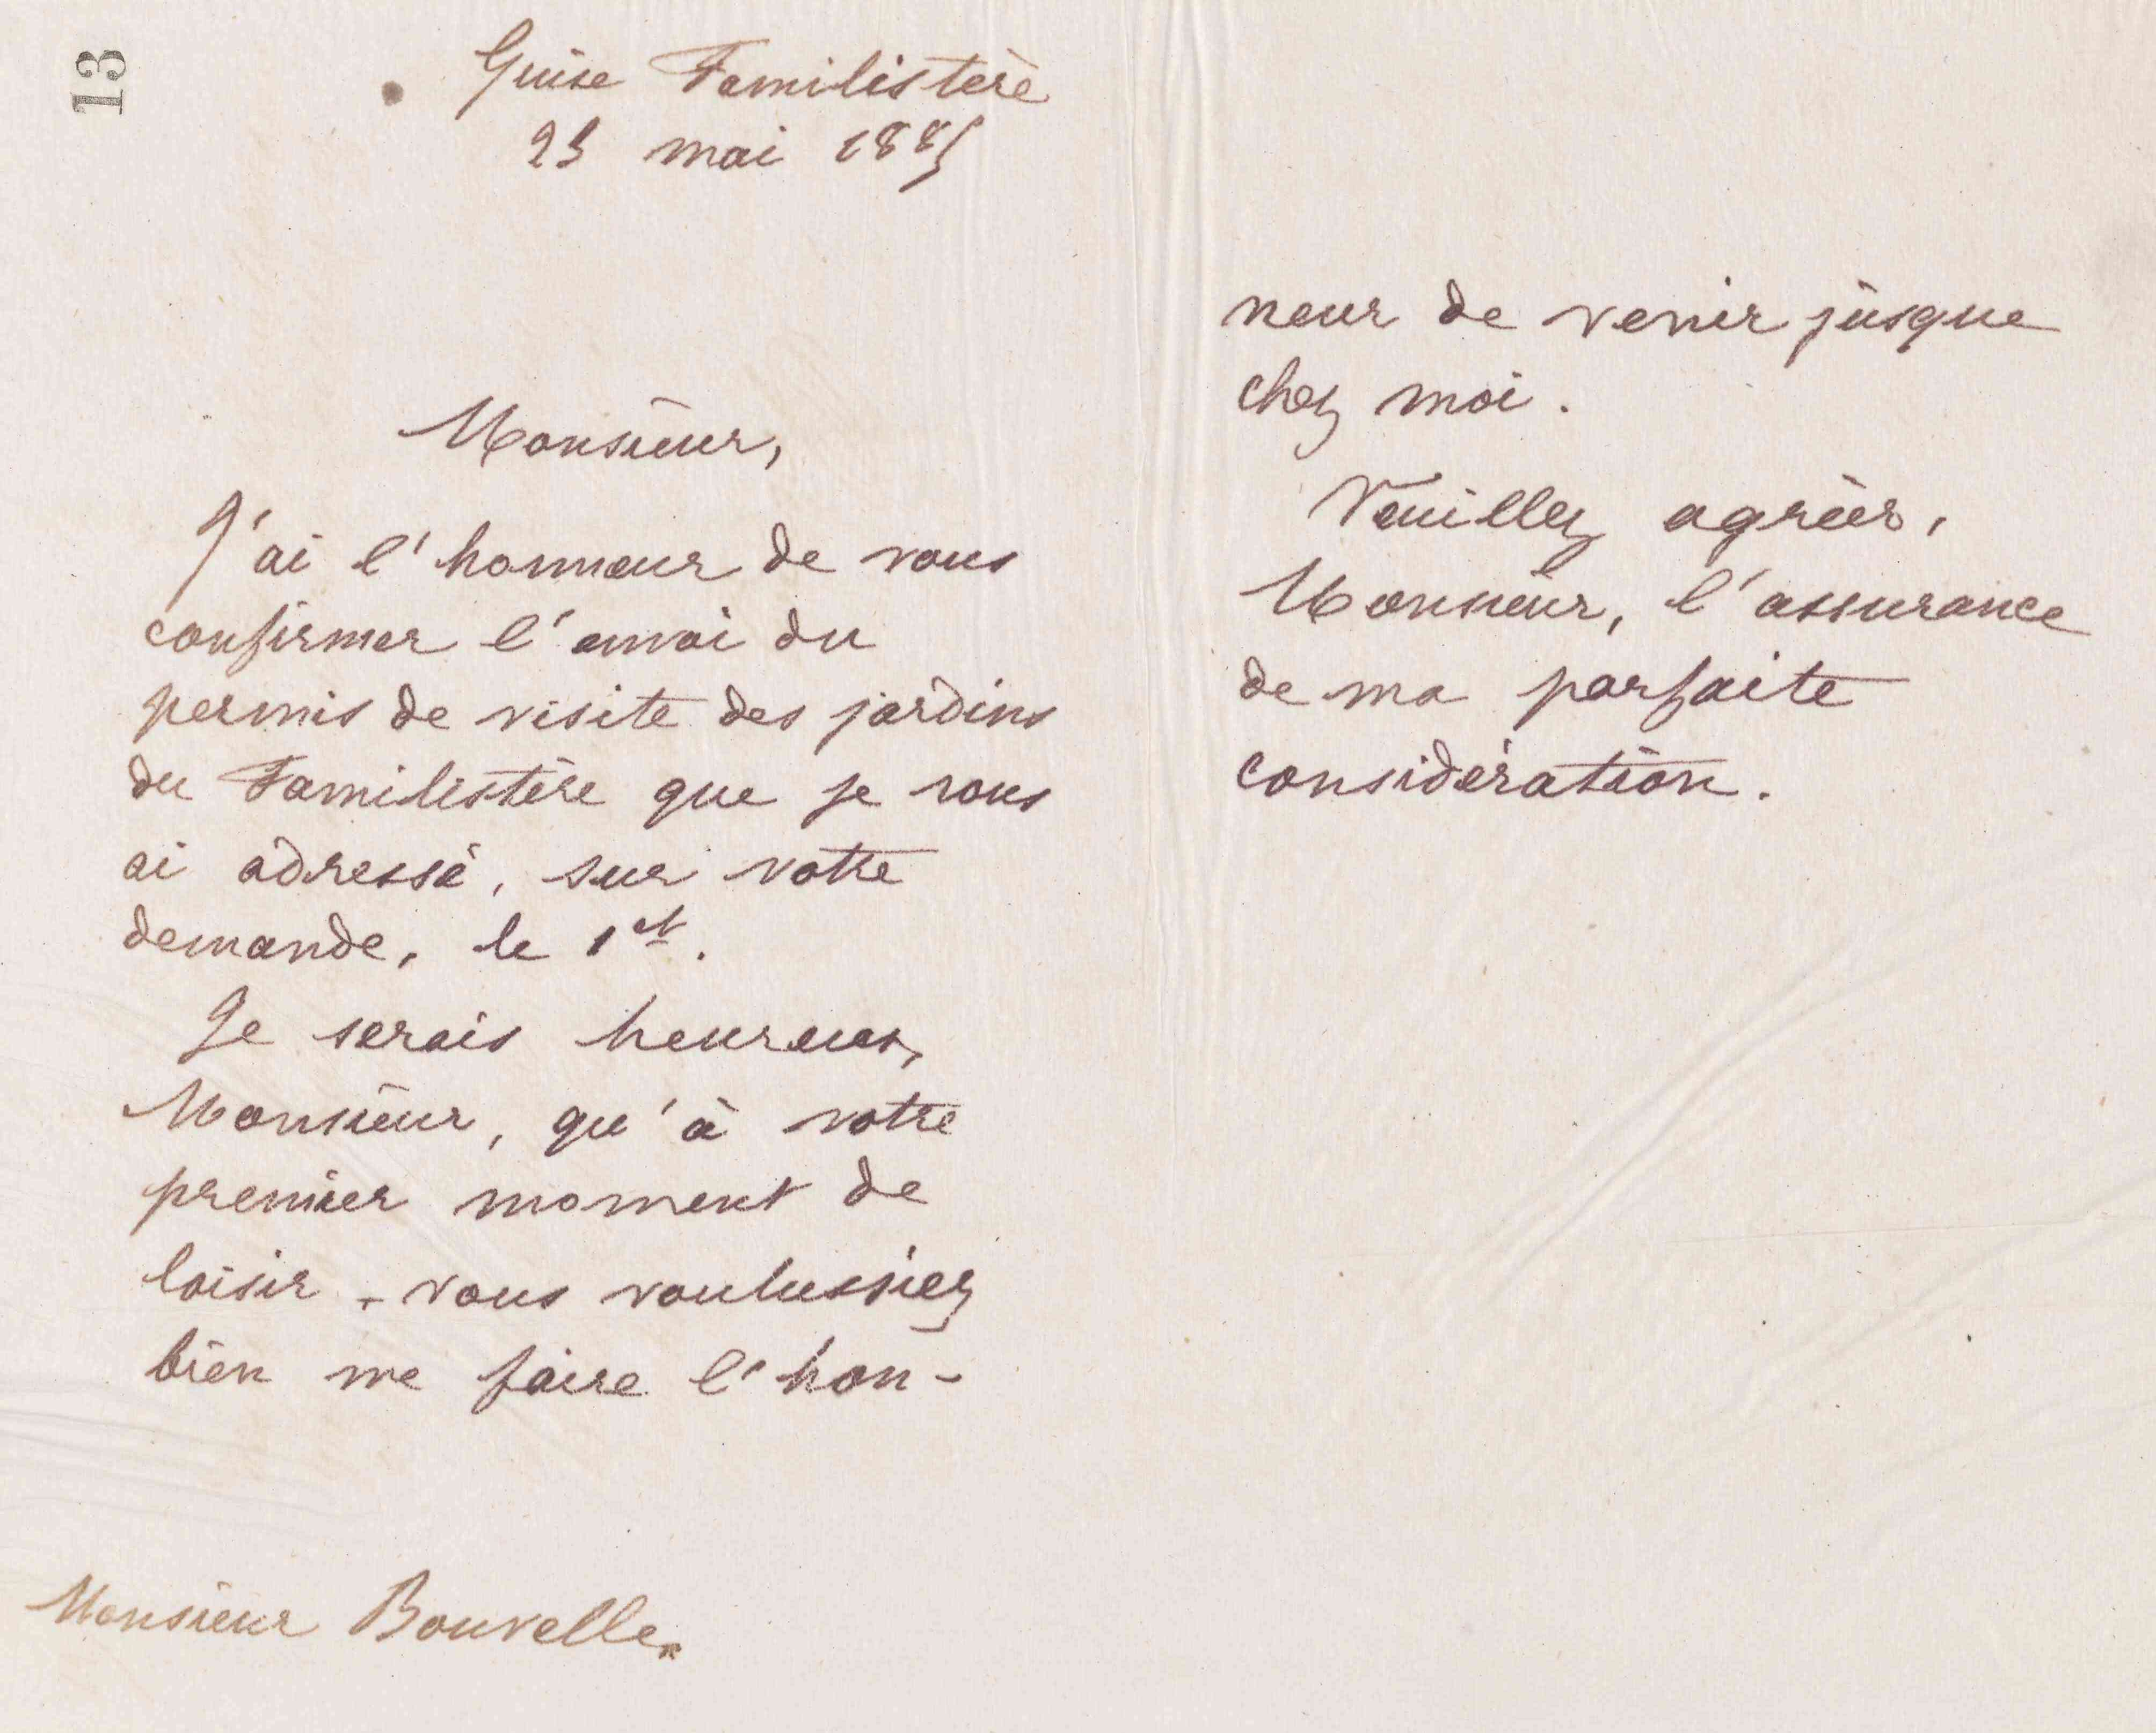 13
Guise Familistère
23 mai 1885
Monsieur,
J'ai l'honneur de vous
confirmer l'envoi du
permis de visite des jardins
du Familistère que je vous
ai adressé, sur votre
demande, le 1er.
Je serais heureux,
Monsieur, qu'à votre
premier moment de
loisir, vous voulussiez
bien me faire l'hon-
Monsieur Bouvelle
neur de venir jusque
chez moi.
Veuillez agréer,
Monsieur, l'assurance
de ma parfaite
considération.